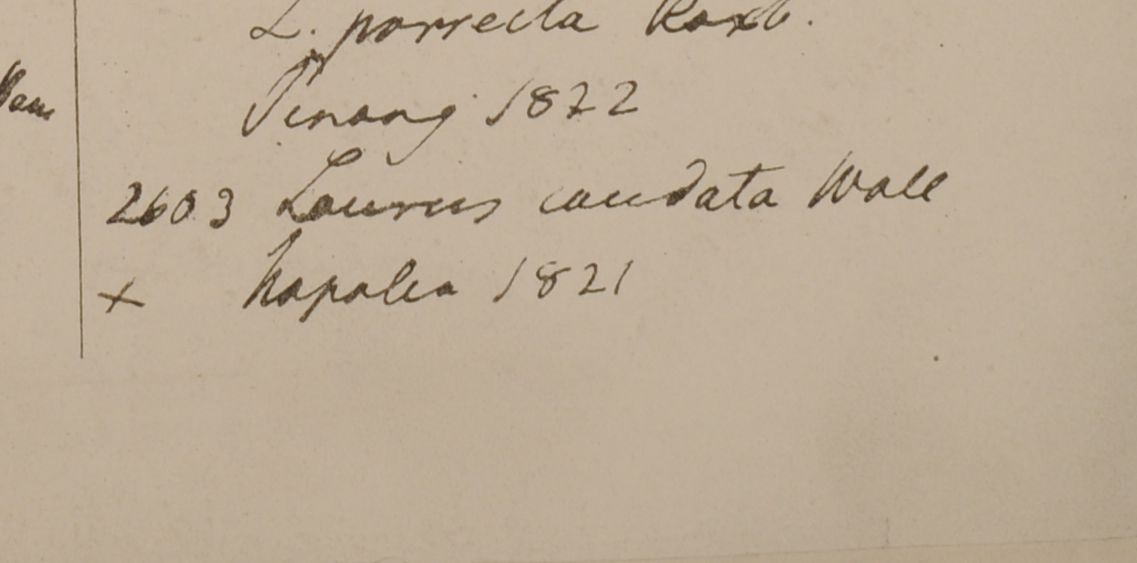 L. porrecta Roxb.
Pinang 1822
2603 Laurus caudata Wall
x Napalia 1821